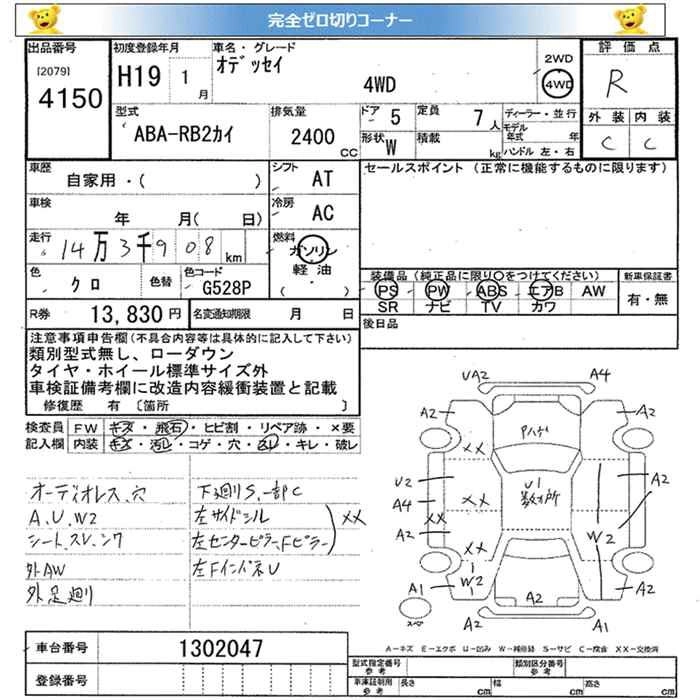 完全ゼロ切りコーナー
出品番号
[2079]
4150
初度登録年月
H19 1 月
車名・グレード
オデッセイ
4WD
2WD
4WD
評価点
R
外装 内装
C C
型式
ABA-RB2カイ
排気量
2400 CC
ドア 5
定員 7 人
形状 W
積載 kg
ディーラー・並行
モデル
年式 年
ハンドル 左・右
車歴
自家用・( )
シフト
AT
セールスポイント (正常に機能するものに限ります)
車検
年 月( 日)
冷房
AC
走行
14万3千908 km
燃料
ガソリン
軽油
( ・ )
色
クロ
色替
色コード
G528P
装備品 (純正品に限り○をつけてください)
新車保証書
PS PW ABS エアB AW
SR ナビ TV カワ
有・無
R券
13,830円
名変通知期限
月 日
後日品
注意事項申告欄(不具合内容等は具体的に記入して下さい)
類別型式無し、ローダウン
タイヤ・ホイール標準サイズ外
車検証備考欄に改造内容緩衝装置と記載
修復歴 有 〔箇所 〕
検査員
記入欄
FW キズ・飛石・ヒビ割・リペア跡・×要
内装 キズ・汚レ・コゲ・穴・スレ・キレ・破レ
オーディオレス、穴
A、U、W2
シート、スレ、シワ
外AW
外足廻り
下廻りS、一部C
左サイドシル
左センターピラー、Fピラー
XX
左FインパネU
UA2 A4
A2 A2
Pハゲ
XX
U2
A4
XX
A2
XX
U1
数カ所
A2
W2
XX
W2
A1
A2
A2
A2
A2 A1
スペア
A-キズ E-エクボ U-凹み W-補修跡 S-サビ C-腐食 XX-交換済
車台番号
1302047
登録番号
型式指定番号
参考
類別区分番号
参考
車庫証明用
参考
長さ cm
幅 cm
高さ cm